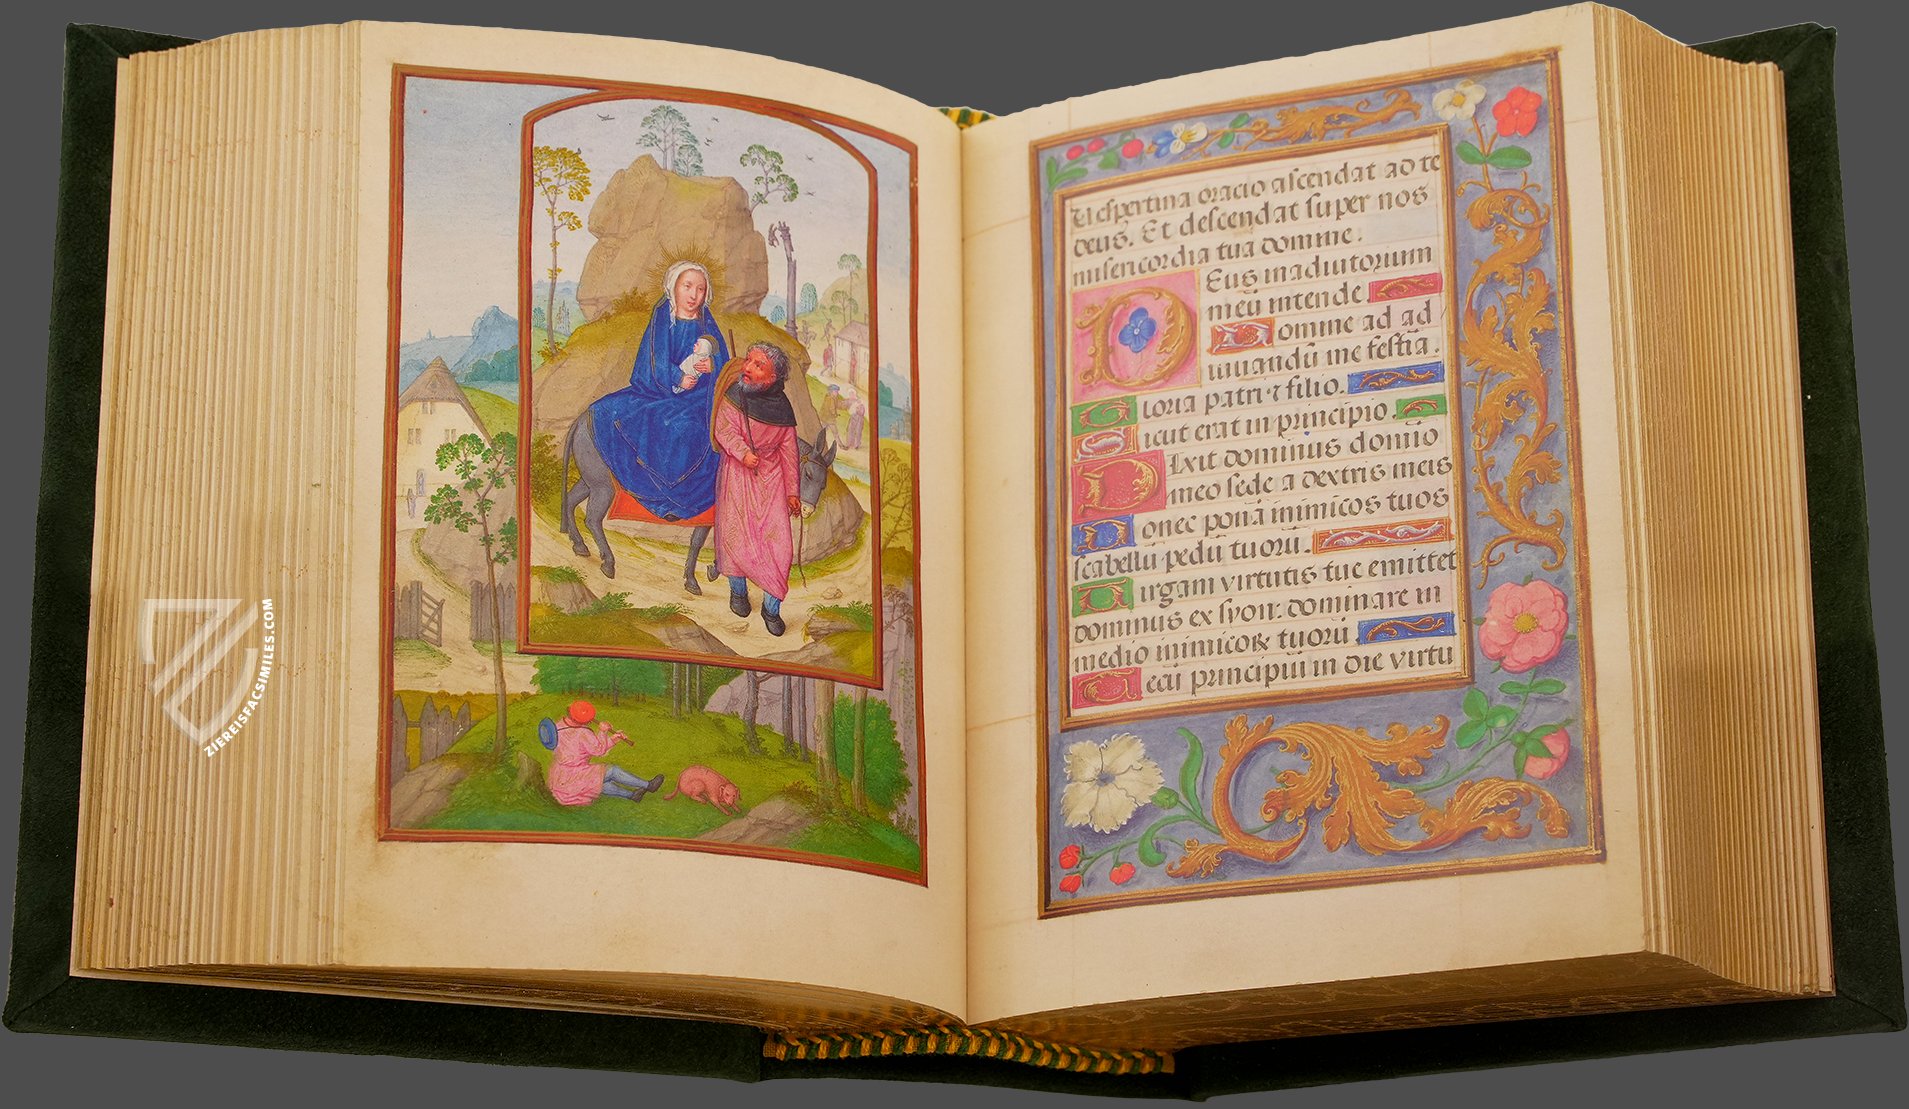 ZIEREISFACSIMILES.COM
Vespertina oracio ascendat ad te
deus. Et descendat super nos
misericordia tua domine.
Deus in adiutorium
meū intende.
Domine ad ad
iuuandū me festīa.
Gloria patri ⁊ filio.
Sicut erat in principio.
Dixit dominus domīo
meo sede a dextris meis
Donec ponā inimicos tuos
scabellū pedū tuorū.
Uirgam virtutis tue emittet
dominus ex syon: dominare in
medio inimicoꝝ tuorū.
Tecū principiū in die virtu